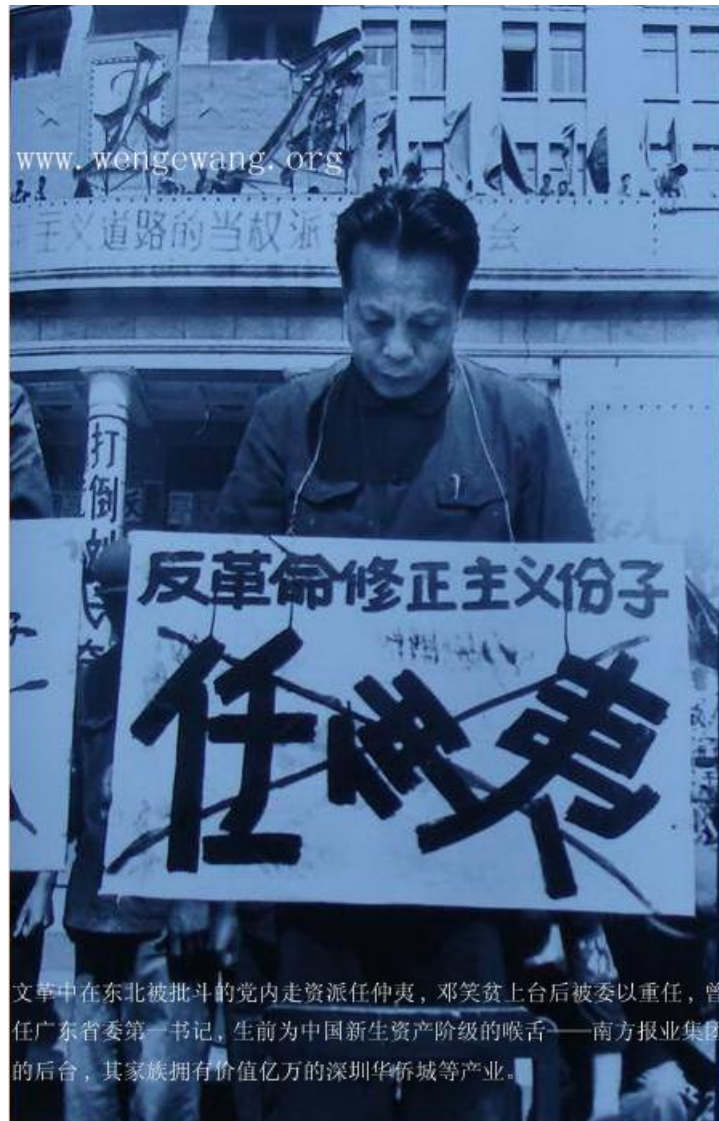 www.wengewang.org
主义道路的当权派
会
打倒
反革命修正主义份子
任仲夷
文革中在东北被批斗的党内走资派任仲夷，邓笑贫上台后被委以重任，曾
任广东省委第一书记，生前为中国新生资产阶级的喉舌——南方报业集团
的后台，其家族拥有价值亿万的深圳华侨城等产业。